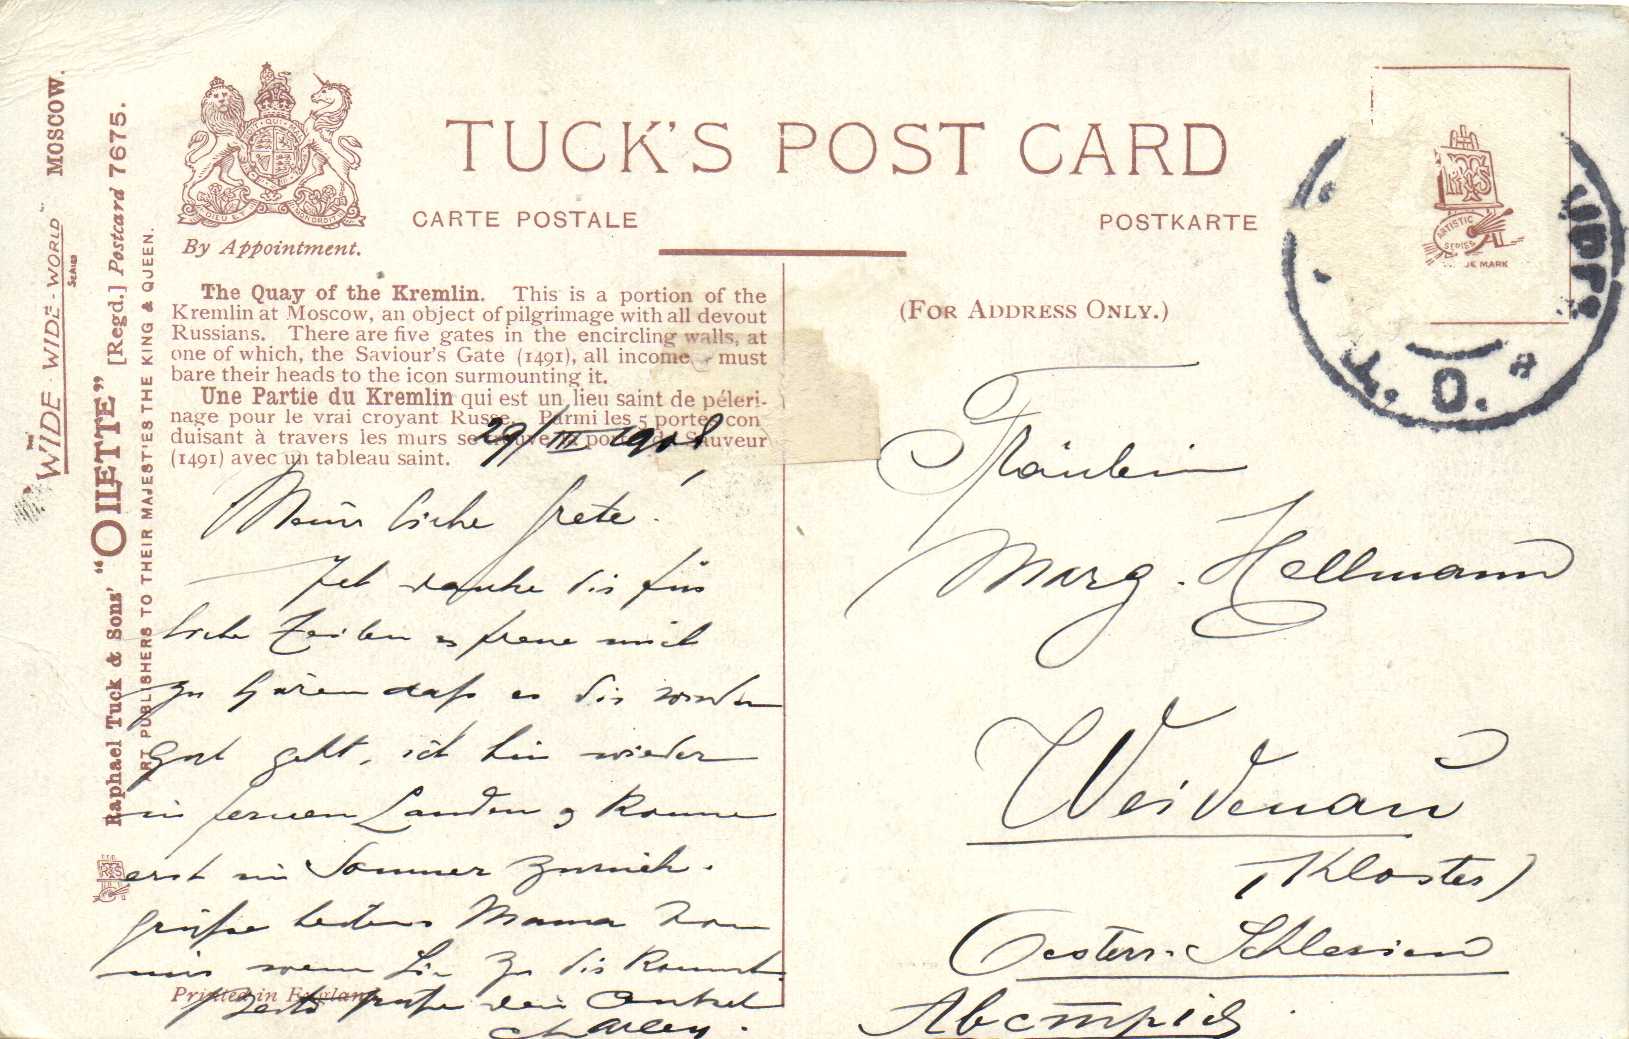 THE
WIDE-WIDE-WORLD
SERIES
MOSCOW.
Raphael Tuck & Sons' "OILETTE" [Regd.] Postcard 7675.
ART PUBLISHERS TO THEIR MAJESTIES THE KING & QUEEN.
By Appointment.
TUCK'S POST CARD
CARTE POSTALE
POSTKARTE
ARTISTIC
SERIES
MARK
T. O.
The Quay of the Kremlin. This is a portion of the
Kremlin at Moscow, an object of pilgrimage with all devout
Russians. There are five gates in the encircling walls, at
one of which, the Saviour's Gate (1491), all income must
bare their heads to the icon surmounting it.
Une Partie du Kremlin qui est un lieu saint de péleri-
nage pour le vrai croyant Russe. Parmi les 5 portes con
duisant à travers les murs se trouve la porte du Sauveur
(1491) avec un tableau saint.
29/III 1908
Meine liebe Grete!
Ich danke dir für
liebe Zeilen es freue mich
zu hören daß es dir
gut geht, ich bin wieder
in fernen Landen & komme
erst im Sommer zurück.
Grüße bestens Mama von
mir wenn Sie zu dir kommt.
Printed in England
grüße dein Onkel
Charley.
(FOR ADDRESS ONLY.)
Fräulein
Marg. Hellmann
Weidenau
(Kloster)
Oesterr. Schlesien